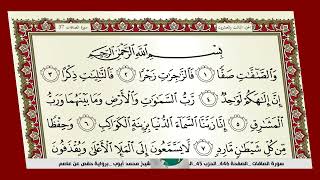 سورة الصافات 37
الجزء الثالث والعشرون
بِسْمِ اللَّهِ الرَّحْمَٰنِ الرَّحِيمِ
وَالصَّٰٓفَّٰتِ صَفًّا ١ فَالزَّٰجِرَٰتِ زَجْرًا ٢ فَالتَّٰلِيَٰتِ ذِكْرًا ٣
إِنَّ إِلَٰهَكُمْ لَوَٰحِدٌ ٤ رَّبُّ السَّمَٰوَٰتِ وَالْأَرْضِ وَمَا بَيْنَهُمَا وَرَبُّ
الْمَشَٰرِقِ ٥ إِنَّا زَيَّنَّا السَّمَآءَ الدُّنْيَا بِزِينَةٍ الْكَوَاكِبِ ٦ وَحِفْظًا
مِّن كُلِّ شَيْطَٰنٍ مَّارِدٍ ٧ لَّا يَسَّمَّعُونَ إِلَى الْمَلَإِ الْأَعْلَىٰ وَيُقْذَفُونَ
سورة الصافات _ الصفحة 446_ الحزب 45_ الشيخ محمد أيوب _ برواية حفص عن عاصم